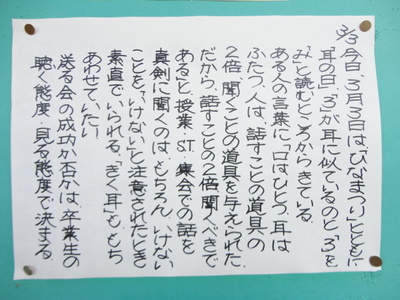 3/3 今日、3月3日は、「ひなまつり」とともに
「耳の日」。「3」が耳に似ているのと、「3」を
「み」と読むところからきている。
ある人の言葉に、「口はひとつ、耳は
ふたつ。人は、話すことの道具の
2倍、聞くことの道具を与えられた。
だから、話すことの2倍、聞くべきで
ある」と。授業・ST・集会での話を
真剣に聞くのは、もちろん、いけない
ことを、「いけない」と注意されたとき
素直でいられる、「きく耳」も、もち
あわせていたい。
送る会の成功か否かは、卒業生の
聴く態度・見る態度で決まる。